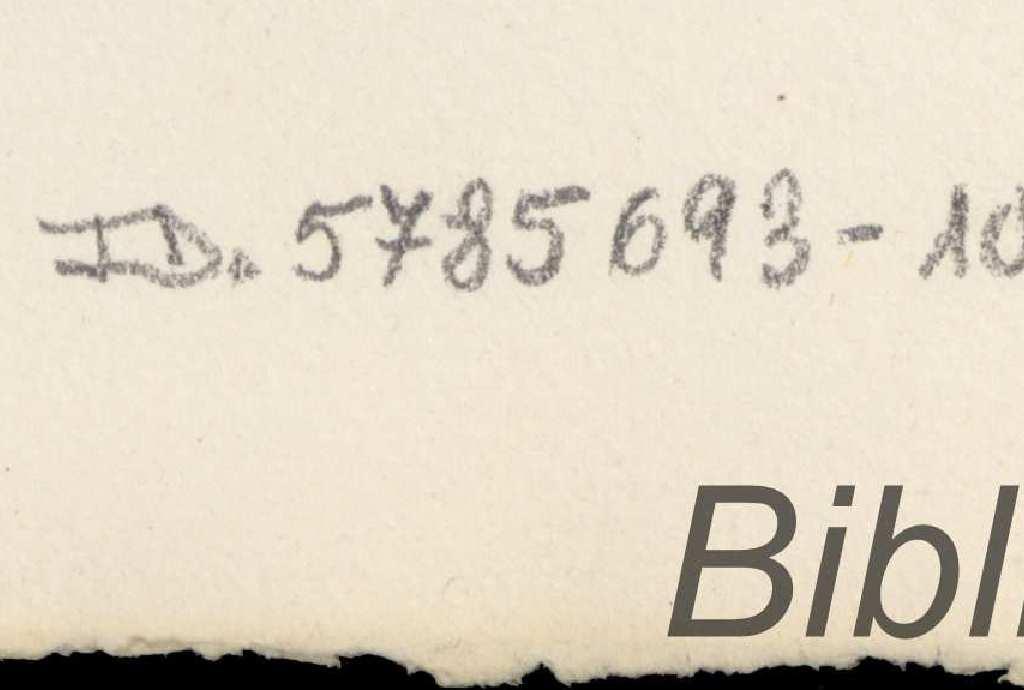 ID. 5785693-10
Bibli